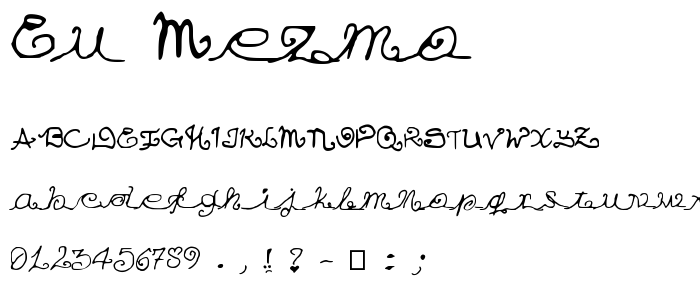 Eu Mezmo
ABCDEFGHIJKLMNOPQRSTUVWXYZ
abcdefghijklmnopqrstuvwx
0123456789 . , ! ? ~ □ : ;